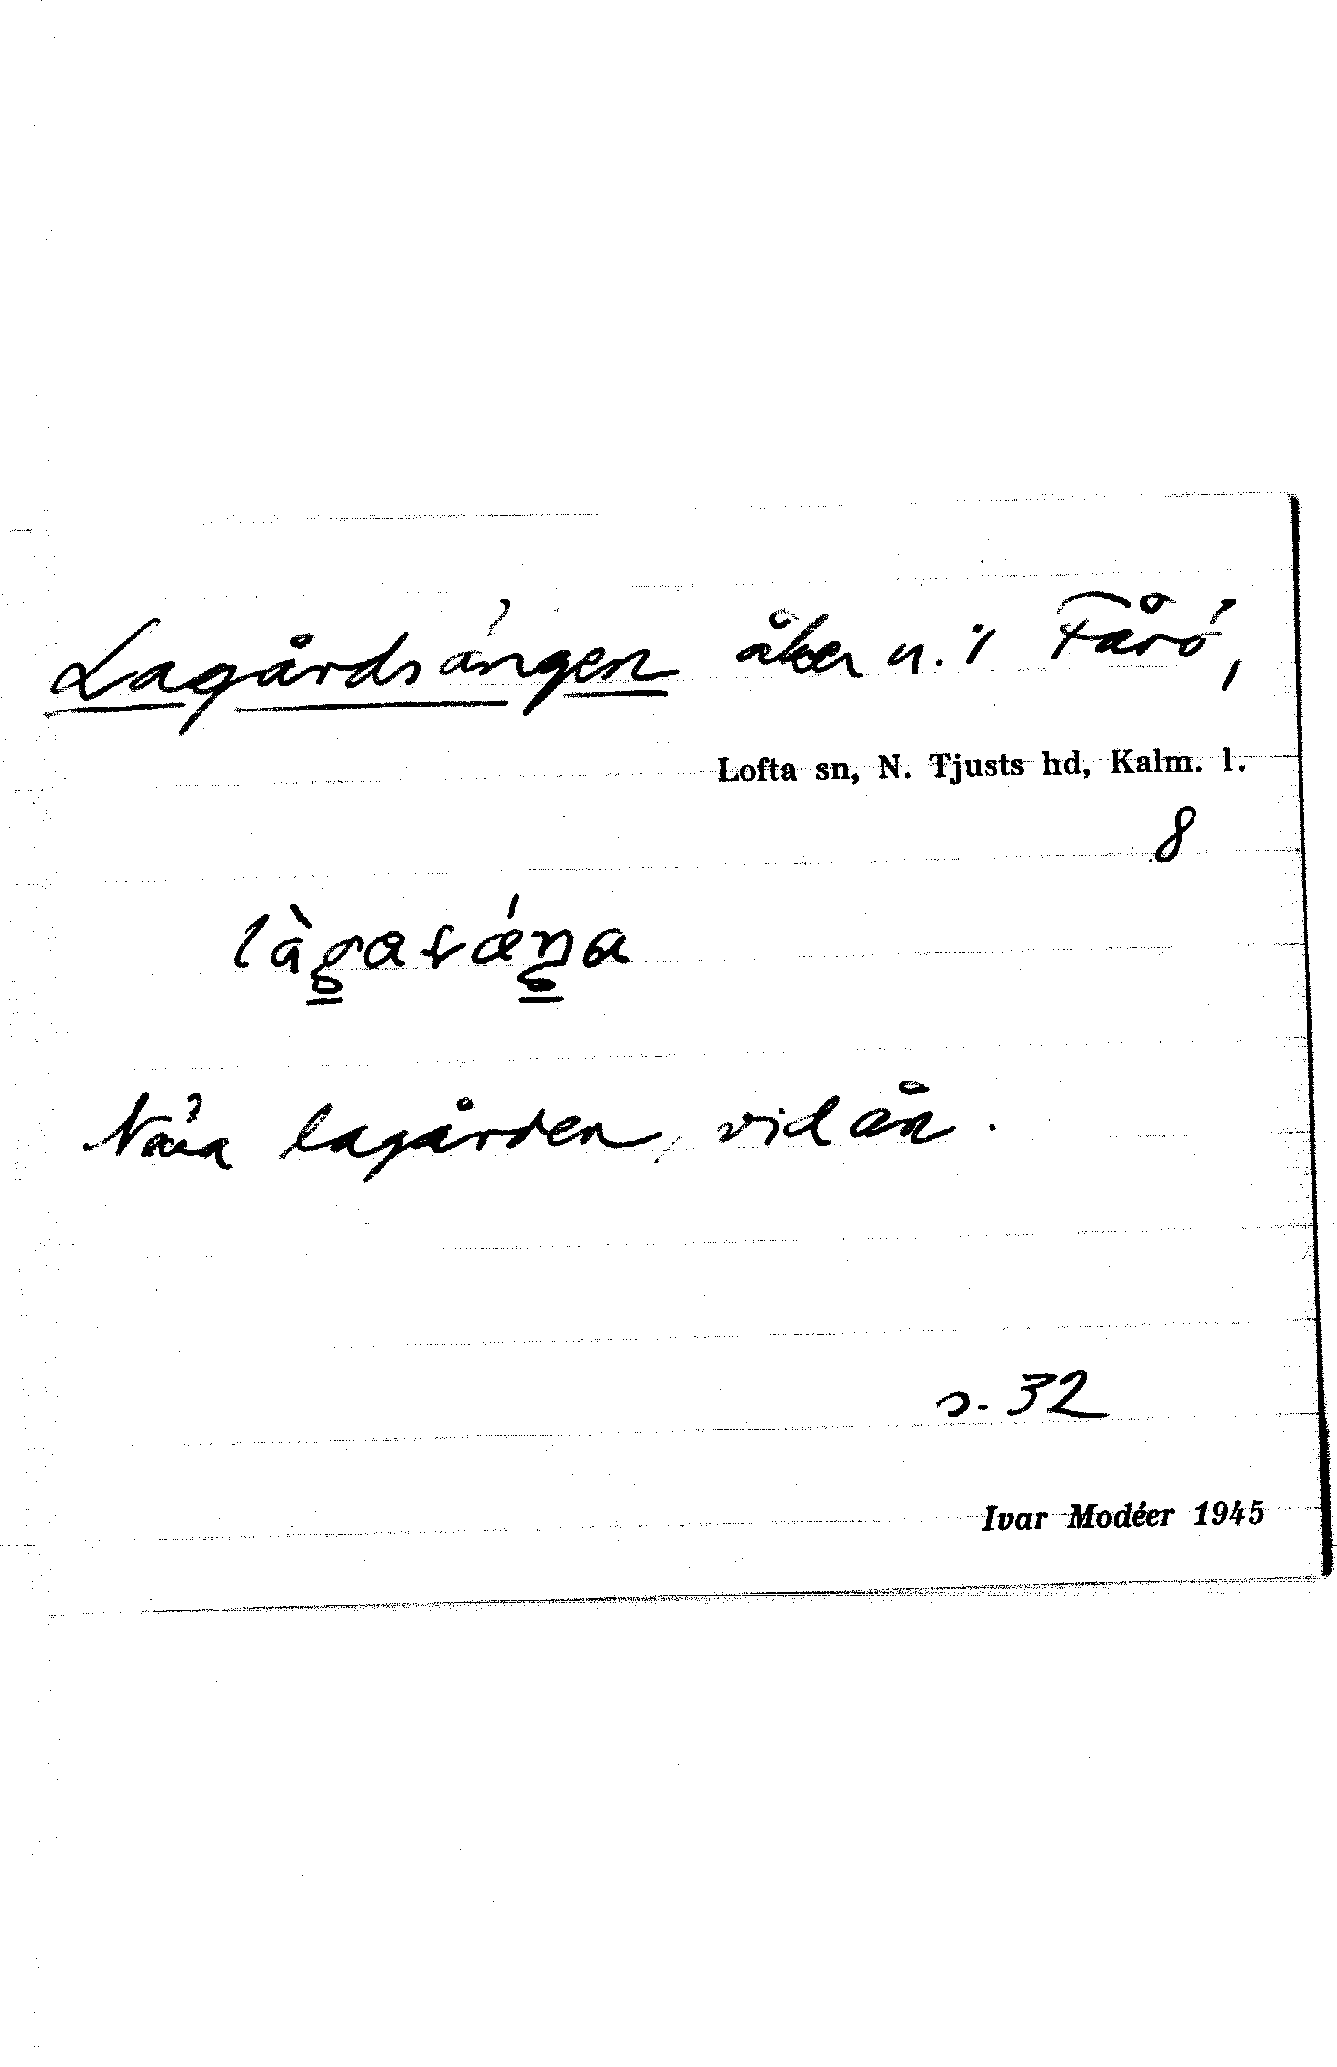 Lagårdsängen åker n. i Fårö,
Lofta sn, N. Tjusts hd, Kalm. l.
8
Nära lagården, vid ån.
s. 32
Ivar Modéer 1945